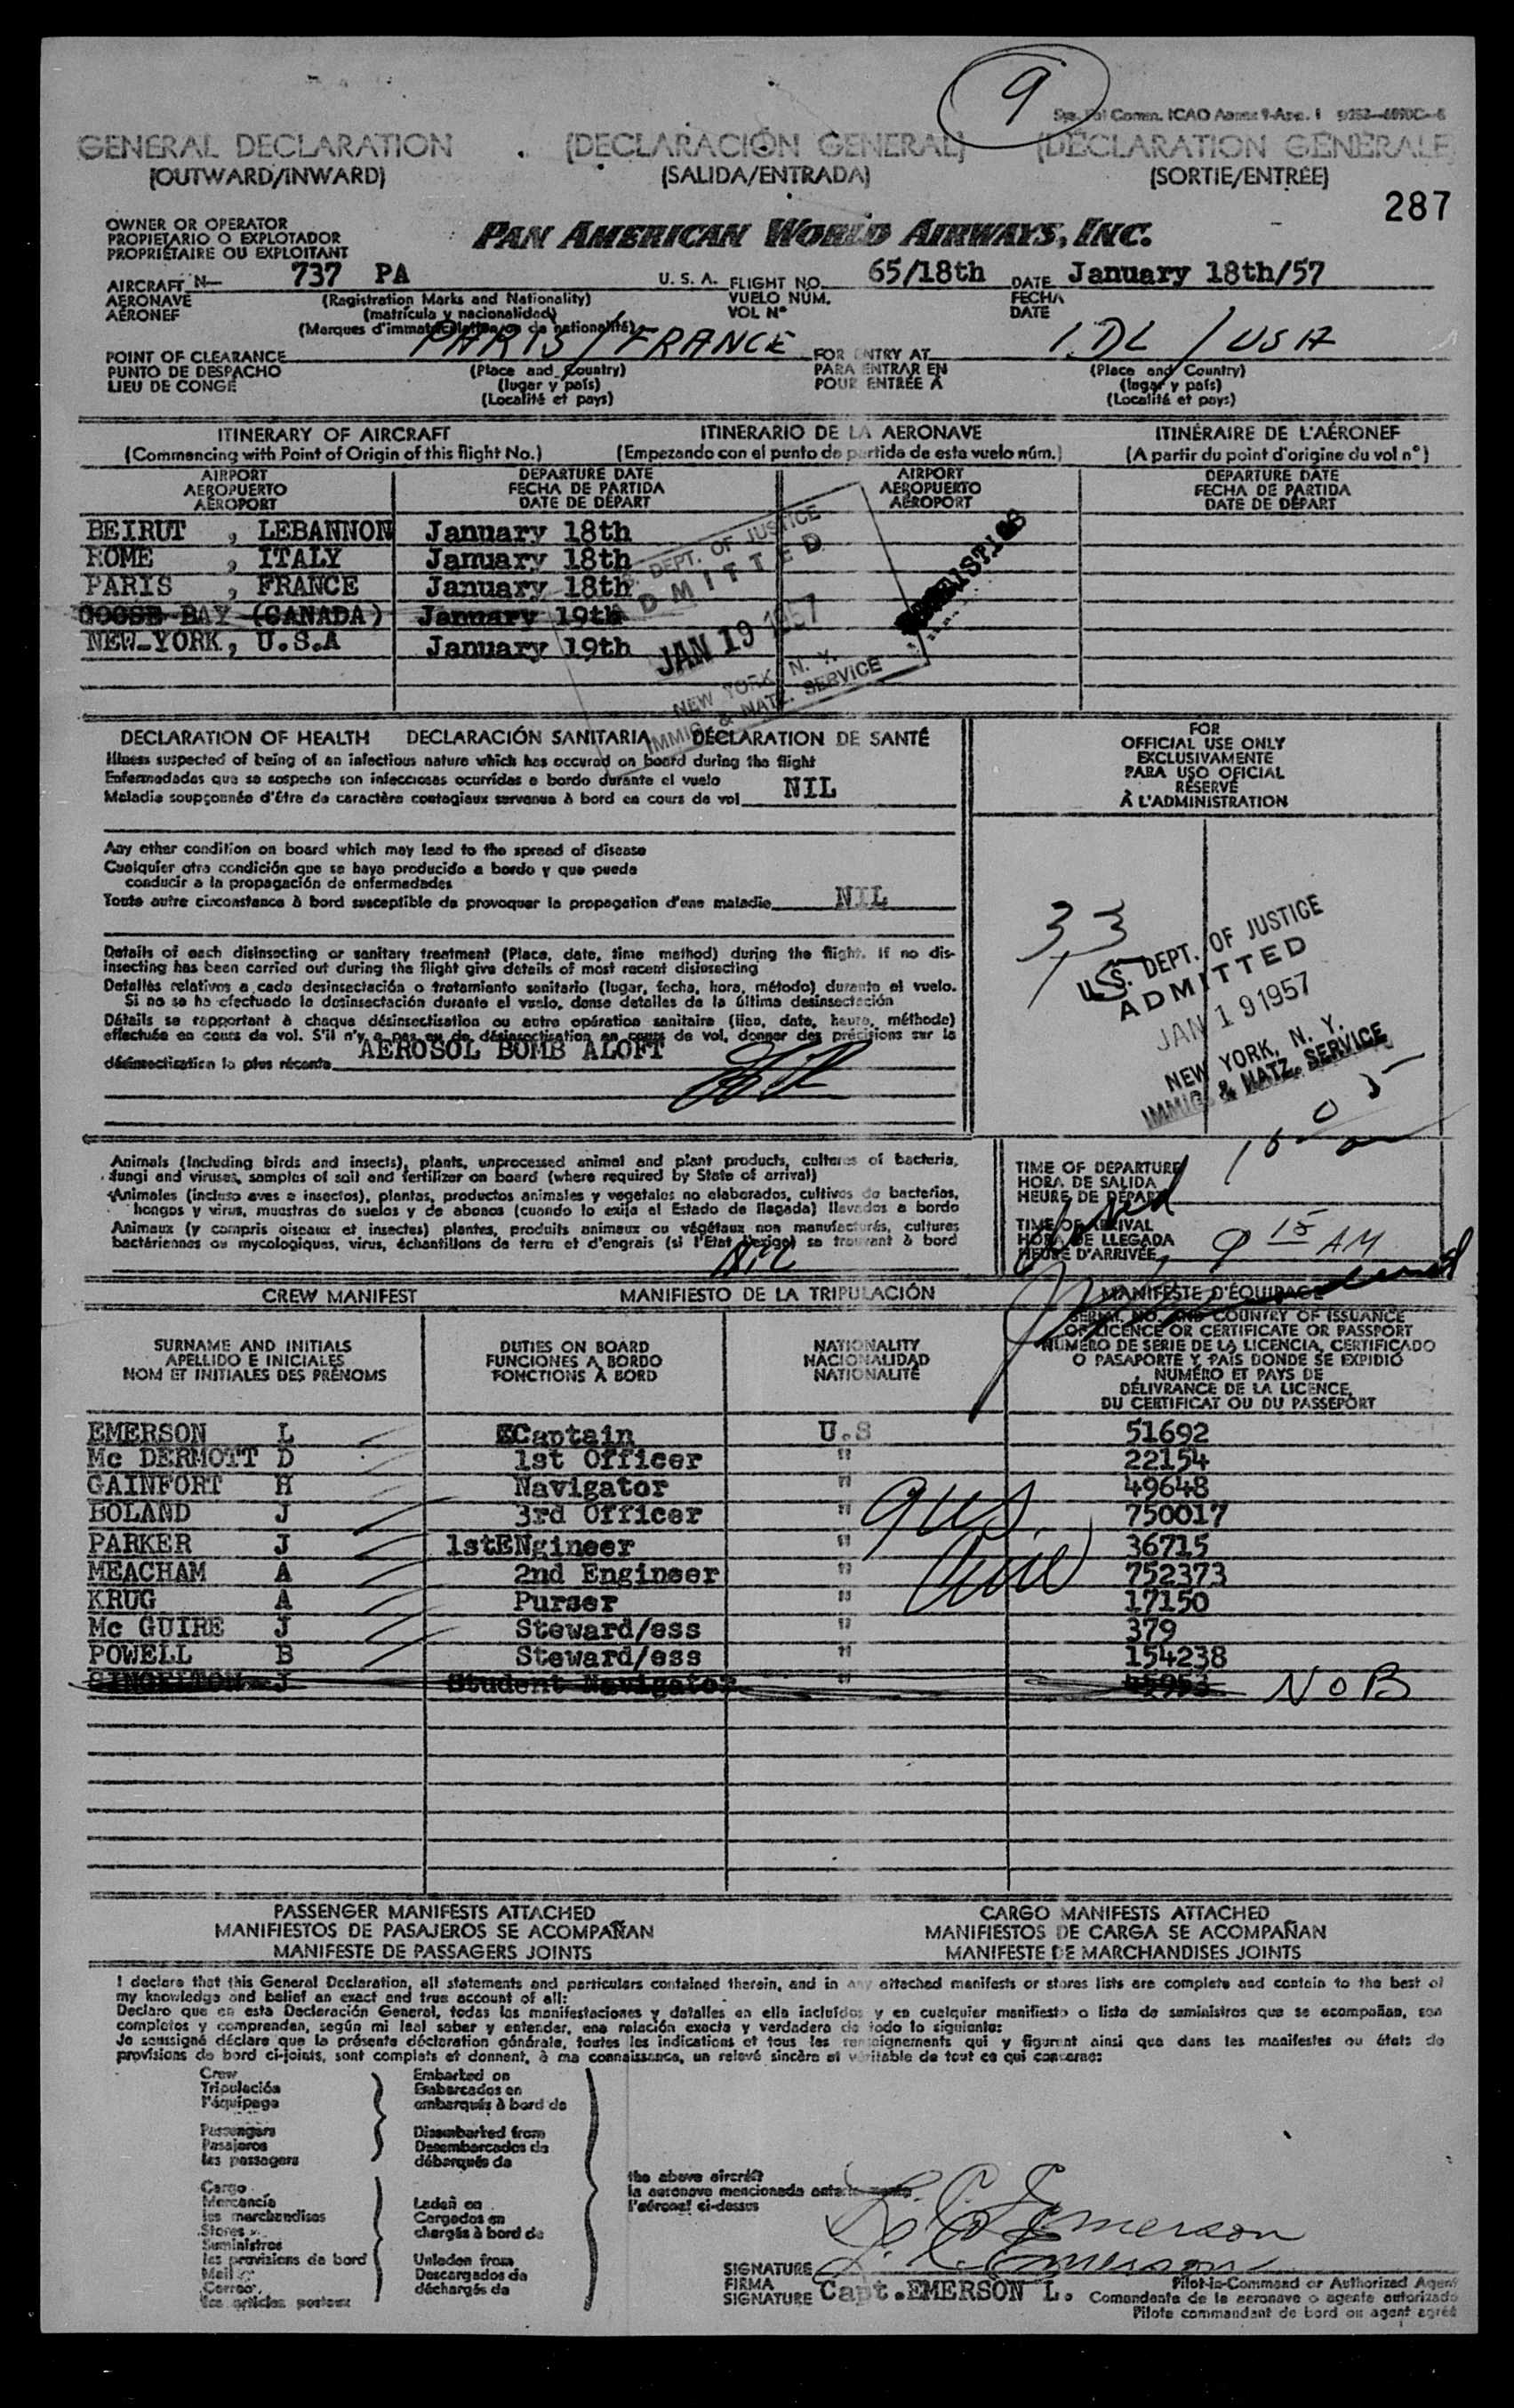 9
GENERAL DECLARATION (DECLARACIÓN GENERAL) (DÉCLARATION GÉNÉRALE)
(OUTWARD/INWARD) (SALIDA/ENTRADA) (SORTIE/ENTRÉE)
287
OWNER OR OPERATOR
PROPIETARIO O EXPLOTADOR
PROPRIÉTAIRE OU EXPLOITANT
PAN AMERICAN WORLD AIRWAYS, INC.
AIRCRAFT N— 737 PA U. S. A. FLIGHT NO. 65/18th DATE January 18th/57
AERONAVE (Registration Marks and Nationality) VUELO NÚM. FECHA
AÉRONEF (matrícula y nacionalidad) VOL Nº DATE
(Marques d'immatriculation et de nationalité)
POINT OF CLEARANCE PARIS / FRANCE FOR ENTRY AT IDL / USA
PUNTO DE DESPACHO (Place and Country) PARA ENTRAR EN (Place and Country)
LIEU DE CONGÉ (lugar y país) POUR ENTRÉE À (lugar y país)
(Localité et pays) (Localité et pays)
ITINERARY OF AIRCRAFT ITINERARIO DE LA AERONAVE ITINÉRAIRE DE L'AÉRONEF
(Commencing with Point of Origin of this flight No.) (Empezando con el punto de partida de este vuelo núm.) (A partir du point d'origine du vol nº)
AIRPORT DEPARTURE DATE AIRPORT DEPARTURE DATE
AEROPUERTO FECHA DE PARTIDA AEROPUERTO FECHA DE PARTIDA
AÉROPORT DATE DE DÉPART AÉROPORT DATE DE DÉPART
BEIRUT , LEBANNON January 18th
ROME , ITALY January 18th
PARIS , FRANCE January 18th
GOOSE BAY (CANADA) January 19th
NEW-YORK, U.S.A January 19th
U.S. DEPT. OF JUSTICE
ADMITTED
JAN 19 1957
NEW YORK, N. Y.
IMMIG. & NATZ. SERVICE
DECLARATION OF HEALTH DECLARACIÓN SANITARIA DÉCLARATION DE SANTÉ
Illness suspected of being of an infectious nature which has occured on board during the flight
Enfermedades que se sospecha son infecciosas ocurridas a bordo durante el vuelo
Maladie soupçonnée d'être de caractère contagieux survenue à bord en cours de vol NIL
Any other condition on board which may lead to the spread of disease
Cualquier otra condición que se haya producido a bordo y que pueda
conducir a la propagación de enfermedades
Toute autre circonstance à bord susceptible de provoquer la propagation d'une maladie NIL
Details of each disinsecting or sanitary treatment (Place, date, time method) during the flight. If no dis-
insecting has been carried out during the flight give details of most recent disinsecting
Detalles relativos a cada desinsectación o tratamiento sanitario (lugar, fecha, hora, método) durante el vuelo.
Si no se ha efectuado la desinsectación durante el vuelo, dense detalles de la última desinsectación
Détails se rapportant à chaque désinsectisation ou autre opération sanitaire (lieu, date, heure, méthode)
effectuée en cours de vol. S'il n'y a pas eu de désinsectisation en cours de vol, donner des précisions sur la
désinsectisation la plus récente AEROSOL BOMB ALOFT
FOR
OFFICIAL USE ONLY
EXCLUSIVAMENTE
PARA USO OFICIAL
RÉSERVÉ
À L'ADMINISTRATION
33
U.S. DEPT. OF JUSTICE
ADMITTED
JAN 19 1957
NEW YORK, N. Y.
IMMIG. & NATZ. SERVICE
Animals (Including birds and insects), plants, unprocessed animal and plant products, cultures of bacteria,
fungi and viruses, samples of soil and fertilizer on board (where required by State of arrival)
Animales (incluso aves e insectos), plantas, productos animales y vegetales no elaborados, cultivos de bacterias,
hongos y virus, muestras de suelos y de abonos (cuando lo exija el Estado de llegada) llevados a bordo
Animaux (y compris oiseaux et insectes) plantes, produits animaux ou végétaux non manufacturés, cultures
bactériennes ou mycologiques, virus, échantillons de terre et d'engrais (si l'Etat l'exige) se trouvant à bord
NIL
TIME OF DEPARTURE
HORA DE SALIDA
HEURE DE DÉPART
TIME OF ARRIVAL
HORA DE LLEGADA
HEURE D'ARRIVÉE 9 15 AM
CREW MANIFEST MANIFIESTO DE LA TRIPULACIÓN MANIFESTE D'ÉQUIPAGE
SURNAME AND INITIALS DUTIES ON BOARD NATIONALITY SERIAL NO. AND COUNTRY OF ISSUANCE
APELLIDO E INICIALES FUNCIONES A BORDO NACIONALIDAD OF LICENCE OR CERTIFICATE OR PASSPORT
NOM ET INITIALES DES PRÉNOMS FONCTIONS À BORD NATIONALITÉ NÚMERO DE SERIE DE LA LICENCIA, CERTIFICADO
O PASAPORTE Y PAÍS DONDE SE EXPIDIÓ
NUMÉRO ET PAYS DE
DÉLIVRANCE DE LA LICENCE,
DU CERTIFICAT OU DU PASSEPORT
EMERSON L Captain U.S 51692
Mc DERMOTT D 1st Officer " 22154
GAINFORT H Navigator " 49648
BOLAND J 3rd Officer " 750017
PARKER J 1stENgineer " 36715
MEACHAM A 2nd Engineer " 752373
KRUG A Purser " 17150
Mc GUIRE J Steward/ess " 379
POWELL B Steward/ess " 154238
J Student Navigator " NOB
PASSENGER MANIFESTS ATTACHED CARGO MANIFESTS ATTACHED
MANIFIESTOS DE PASAJEROS SE ACOMPAÑAN MANIFIESTOS DE CARGA SE ACOMPAÑAN
MANIFESTE DE PASSAGERS JOINTS MANIFESTE DE MARCHANDISES JOINTS
I declare that this General Declaration, all statements and particulars contained therein, and in any attached manifests or stores lists are complete and contain to the best of
my knowledge and belief an exact and true account of all:
Declaro que en esta Declaración General, todas las manifestaciones y detalles en ella incluídos y en cualquier manifiesto o lista de suministros que se acompañan, son
completos y comprenden, según mi leal saber y entender, una relación exacta y verdadera de todo lo siguiente:
Je soussigné déclare que la présente déclaration générale, toutes les indications et tous les renseignements qui y figurent ainsi que dans les manifestes ou états de
provisions de bord ci-joints, sont complets et donnent, à ma connaissance, un relevé sincère et véritable de tout ce qui concerne:
Crew Embarked on
Tripulación Embarcados en
l'équipage embarqués à bord de
Passengers Disembarked from
Pasajeros Desembarcados de
les passagers débarqués de
the above aircraft
la aeronave mencionada anteriormente
l'aéronef ci-dessus
Cargo
Mercancía Laden on
les marchandises Cargados en
Stores chargés à bord de
Suministros
les provisions de bord Unladen from
Mail Descargados de
Correo déchargés de
les articles postaux
L. C. Emerson
L. C. Emerson
SIGNATURE
FIRMA
SIGNATURE Capt.EMERSON L.
Pilot-in-Command or Authorized Agent
Comandante de la aeronave o agente autorizado
Pilote commandant de bord ou agent agréé